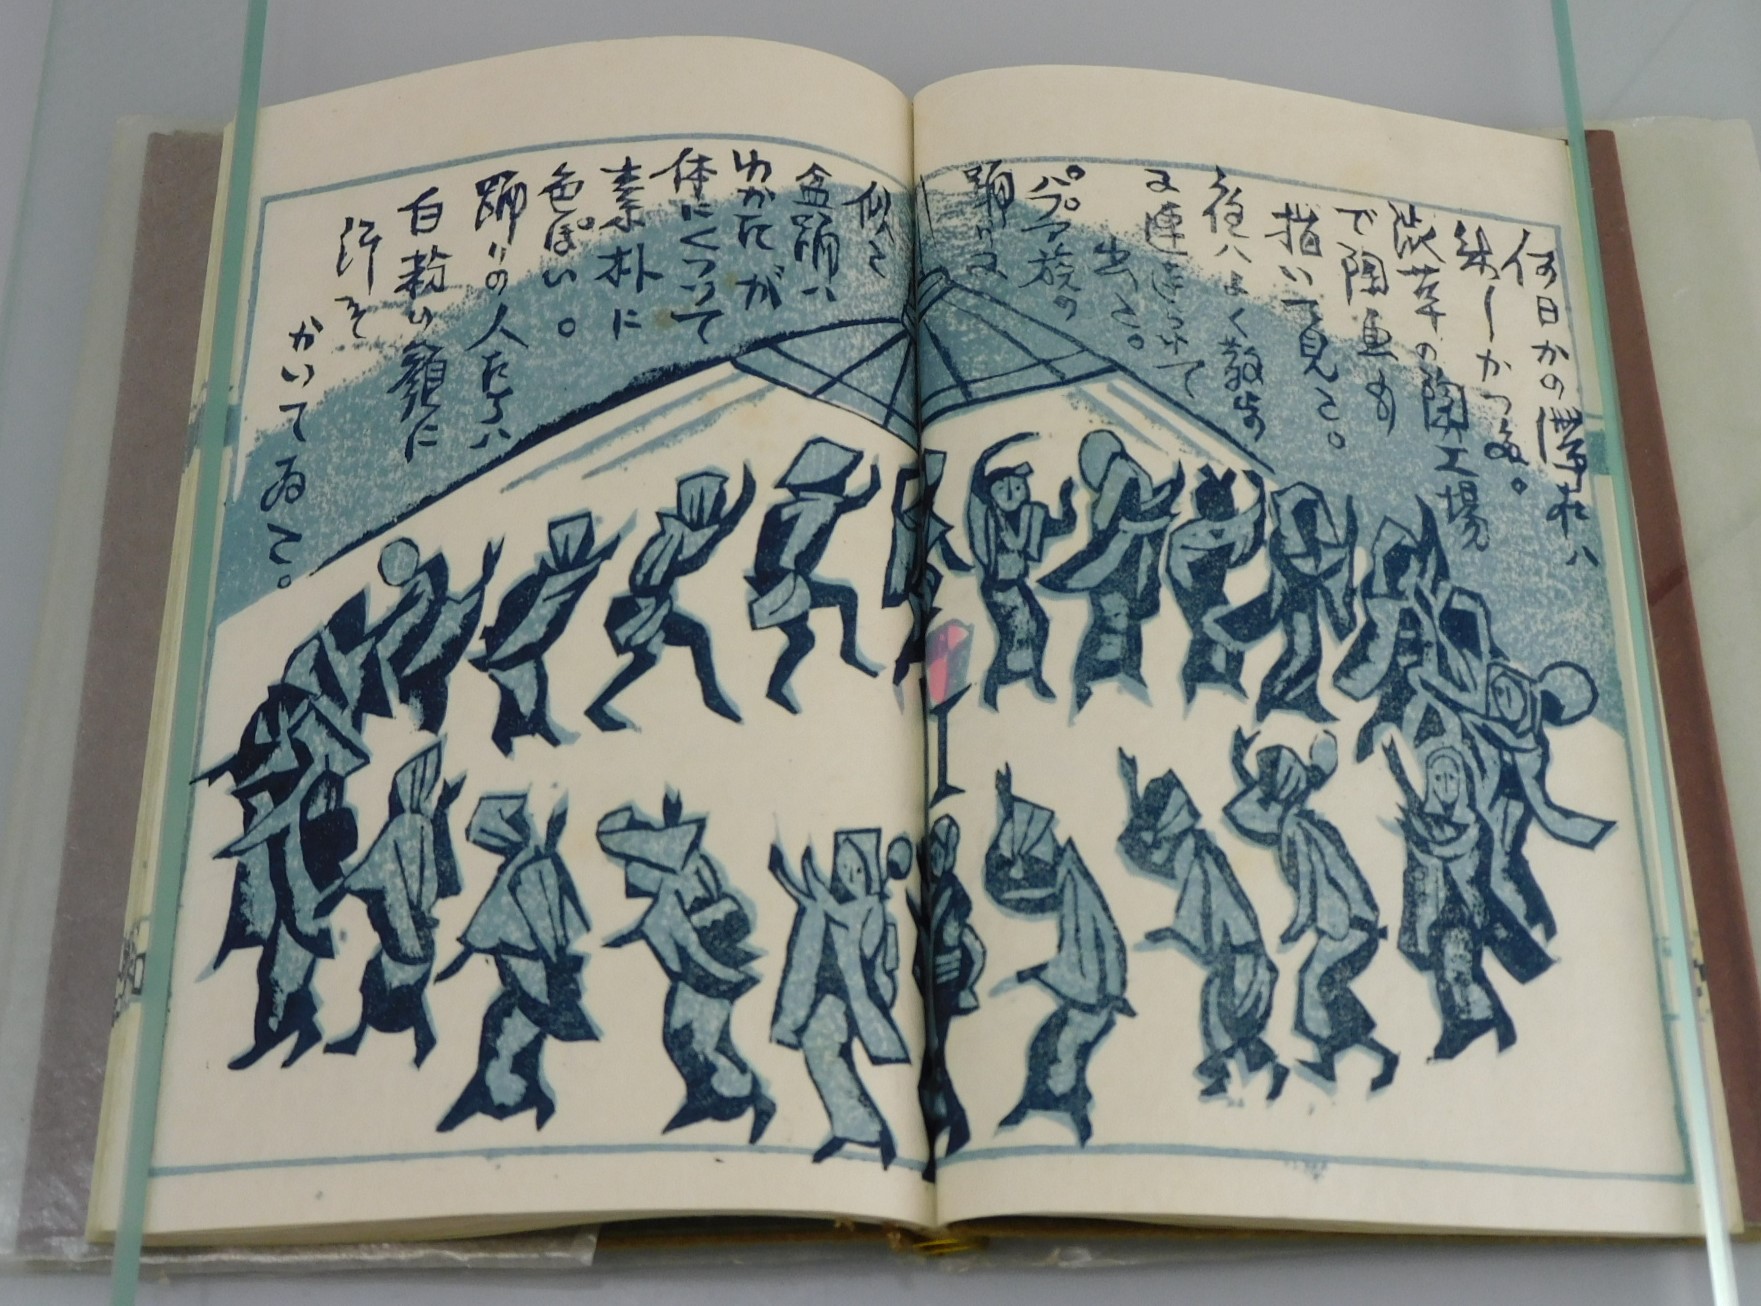 何日かの滞在ハ
楽しかつた。
渋草の陶工場
で陶画も
描いて見た。
夜ハよく散歩
に連ばられて
出た。
パプア族の
踊りに
似た
盆踊ハ
ゆかたが
体にくついて
素朴に
色ぽい。
踊りの人たちハ
白粉の顔に
汗を
かいてゐた。